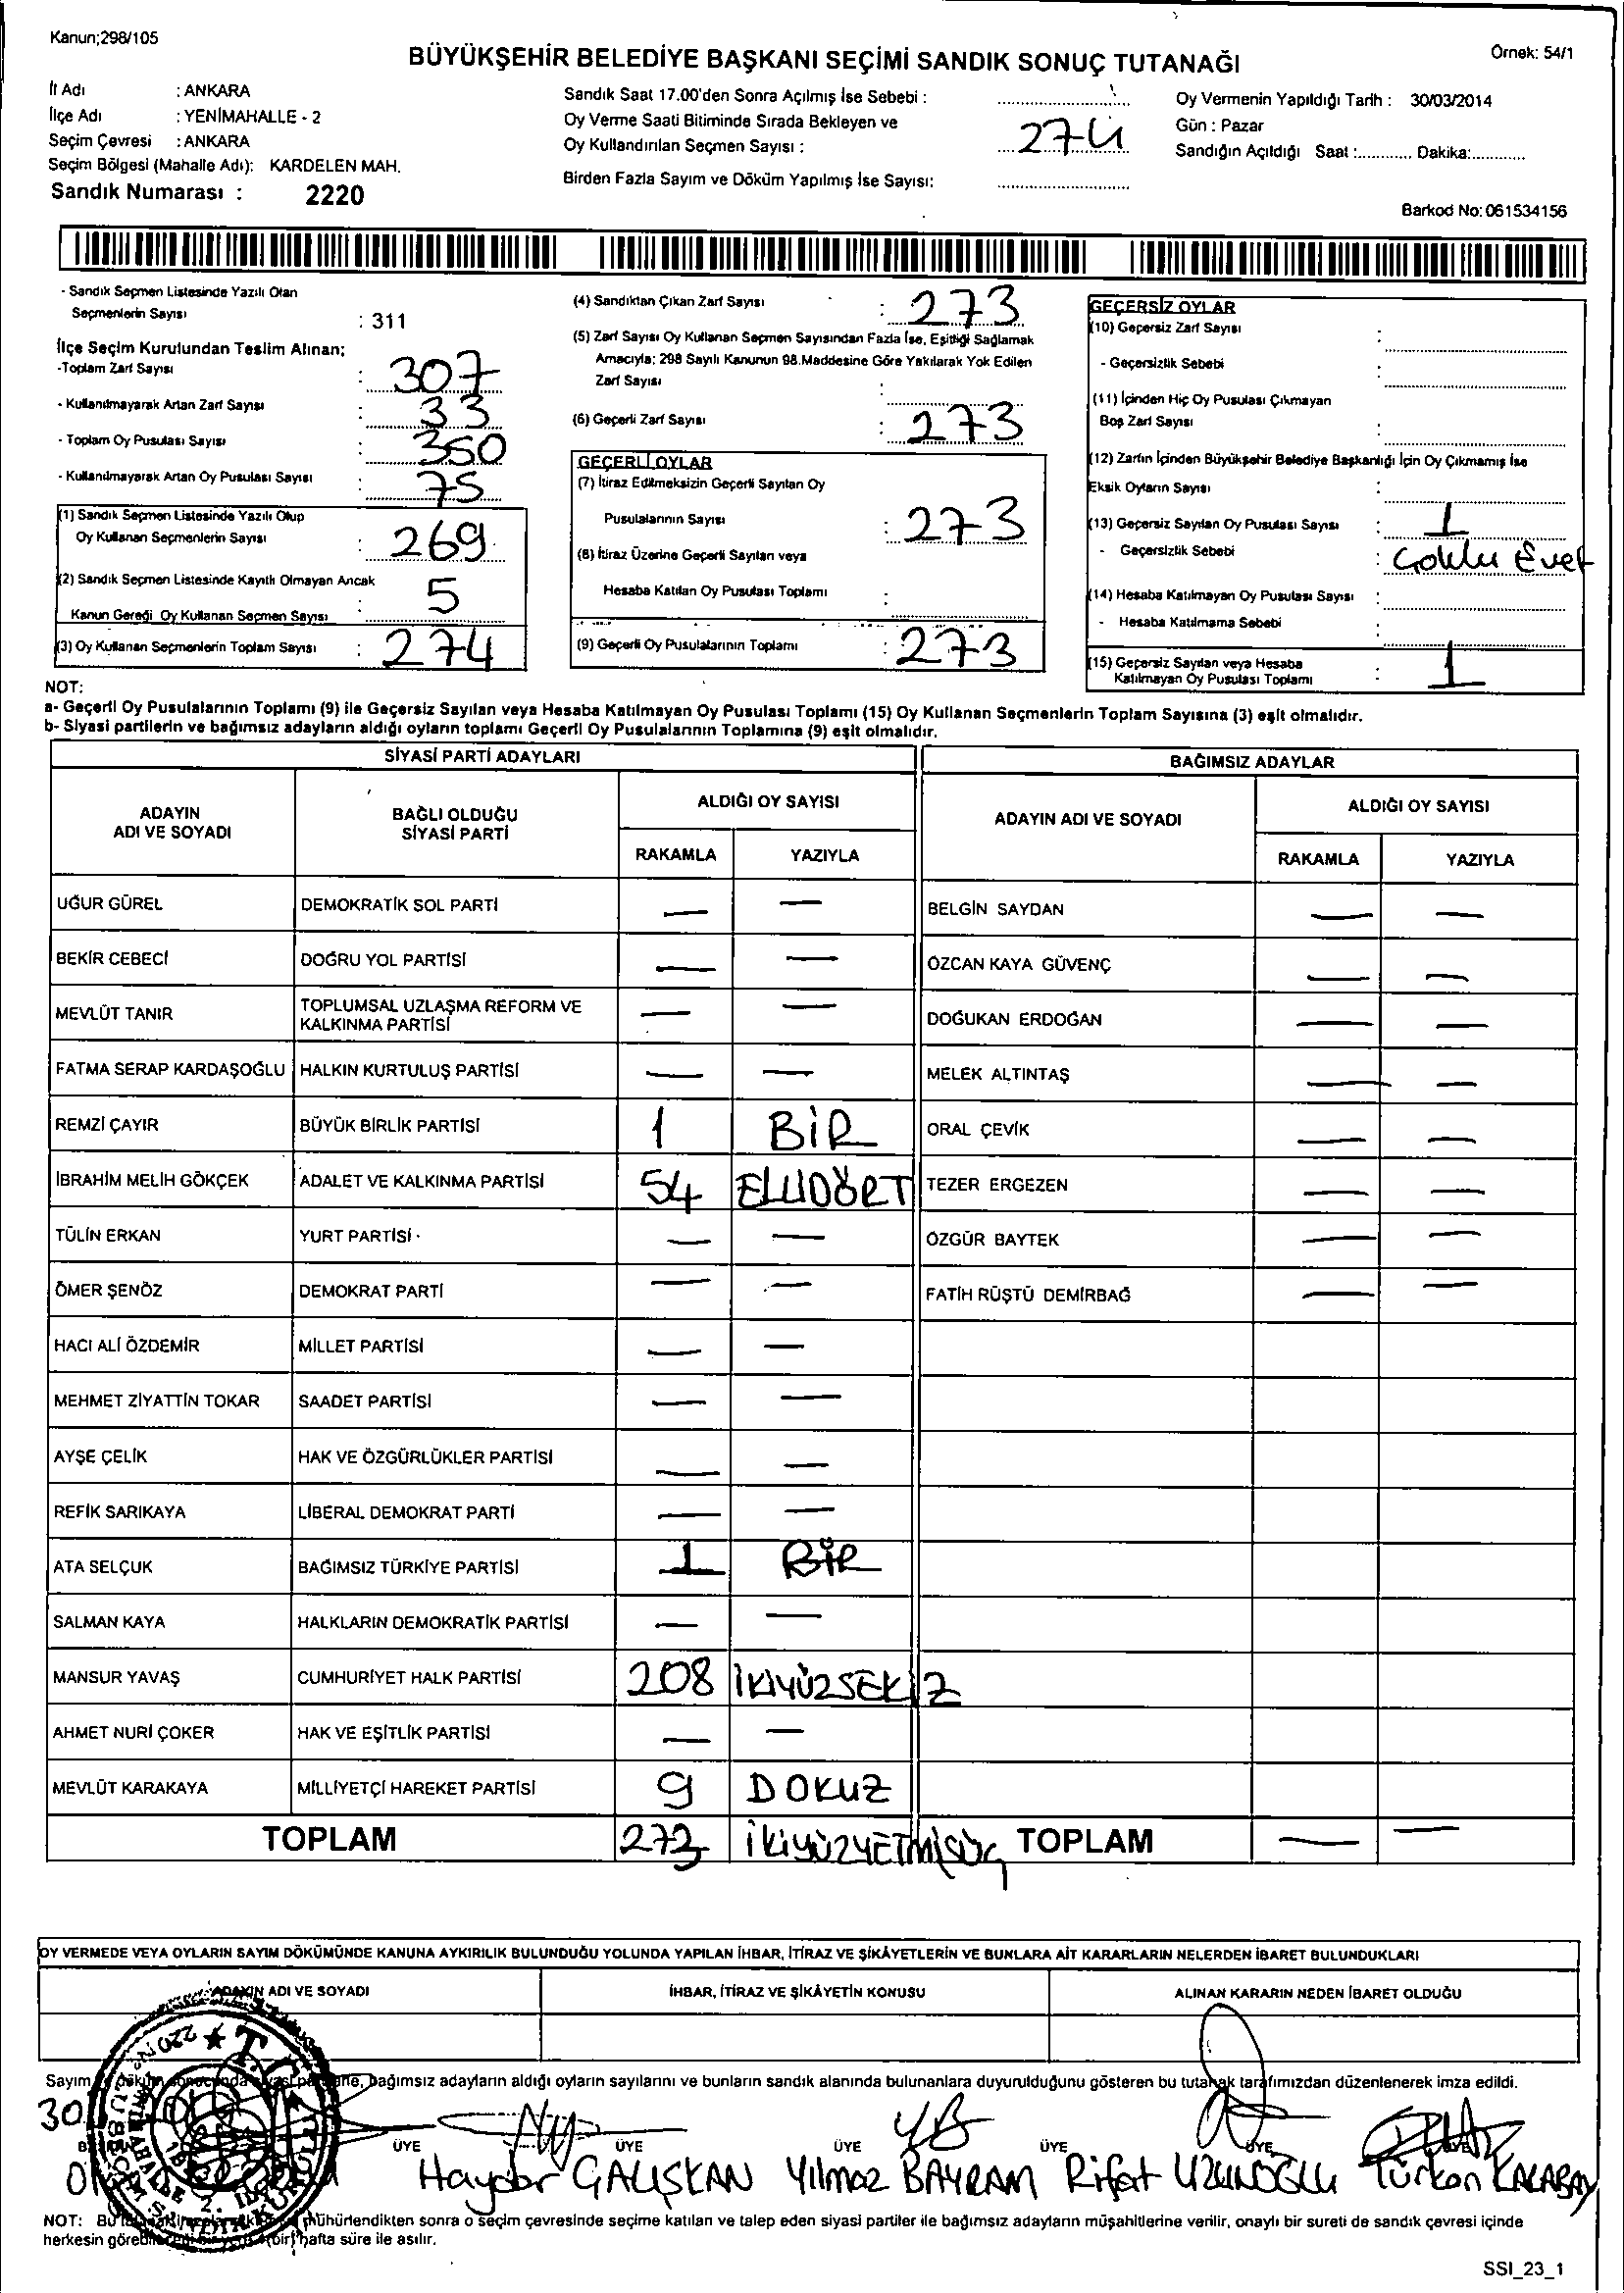 Kanun;298/105
BÜYÜKŞEHİR BELEDİYE BAŞKANI SEÇİMİ SANDIK SONUÇ TUTANAĞI
Örnek: 54/1
İl Adı : ANKARA
İlçe Adı : YENİMAHALLE - 2
Seçim Çevresi : ANKARA
Seçim Bölgesi (Mahalle Adı): KARDELEN MAH.
Sandık Numarası : 2220
Sandık Saat 17.00'den Sonra Açılmış İse Sebebi :
Oy Verme Saati Bitiminde Sırada Bekleyen ve
Oy Kullandırılan Seçmen Sayısı : 274
Birden Fazla Sayım ve Döküm Yapılmış İse Sayısı:
Oy Vermenin Yapıldığı Tarih : 30/03/2014
Gün : Pazar
Sandığın Açıldığı Saat :............ Dakika:............
Barkod No: 061534156
- Sandık Seçmen Listesinde Yazılı Olan
Seçmenlerin Sayısı : 311
İlçe Seçim Kurulundan Teslim Alınan;
-Toplam Zarf Sayısı : 307
- Kullanılmayarak Artan Zarf Sayısı : 33
- Toplam Oy Pusulası Sayısı : 350
- Kullanılmayarak Artan Oy Pusulası Sayısı : 75
(1) Sandık Seçmen Listesinde Yazılı Olup
Oy Kullanan Seçmenlerin Sayısı : 269
(2) Sandık Seçmen Listesinde Kayıtlı Olmayan Ancak
Kanun Gereği Oy Kullanan Seçmen Sayısı : 5
(3) Oy Kullanan Seçmenlerin Toplam Sayısı : 274
(4) Sandıktan Çıkan Zarf Sayısı : 273
(5) Zarf Sayısı Oy Kullanan Seçmen Sayısından Fazla İse, Eşitliği Sağlamak
Amacıyla; 298 Sayılı Kanunun 98.Maddesine Göre Yakılarak Yok Edilen
Zarf Sayısı :
(6) Geçerli Zarf Sayısı : 273
GEÇERLİ OYLAR
(7) İtiraz Edilmeksizin Geçerli Sayılan Oy
Pusulalarının Sayısı : 273
(8) İtiraz Üzerine Geçerli Sayılan veya
Hesaba Katılan Oy Pusulası Toplamı :
(9) Geçerli Oy Pusulalarının Toplamı : 273
GEÇERSİZ OYLAR
(10) Geçersiz Zarf Sayısı :
- Geçersizlik Sebebi :
(11) İçinden Hiç Oy Pusulası Çıkmayan
Boş Zarf Sayısı :
(12) Zarfın İçinden Büyükşehir Belediye Başkanlığı İçin Oy Çıkmamış İse
Eksik Oyların Sayısı :
(13) Geçersiz Sayılan Oy Pusulası Sayısı : 1
- Geçersizlik Sebebi : Çoklu Evet
(14) Hesaba Katılmayan Oy Pusulası Sayısı :
- Hesaba Katılmama Sebebi :
(15) Geçersiz Sayılan veya Hesaba
Katılmayan Oy Pusulası Toplamı : 1
NOT:
a- Geçerli Oy Pusulalarının Toplamı (9) ile Geçersiz Sayılan veya Hesaba Katılmayan Oy Pusulası Toplamı (15) Oy Kullanan Seçmenlerin Toplam Sayısına (3) eşit olmalıdır.
b- Siyasi partilerin ve bağımsız adayların aldığı oyların toplamı Geçerli Oy Pusulalarının Toplamına (9) eşit olmalıdır.
SİYASİ PARTİ ADAYLARI
BAĞIMSIZ ADAYLAR
ADAYIN ADI VE SOYADI
BAĞLI OLDUĞU SİYASİ PARTİ
ALDIĞI OY SAYISI
RAKAMLA YAZIYLA
ADAYIN ADI VE SOYADI
ALDIĞI OY SAYISI
RAKAMLA YAZIYLA
UĞUR GÜREL DEMOKRATİK SOL PARTİ — — BELGİN SAYDAN — —
BEKİR CEBECİ DOĞRU YOL PARTİSİ — — ÖZCAN KAYA GÜVENÇ — —
MEVLÜT TANIR TOPLUMSAL UZLAŞMA REFORM VE KALKINMA PARTİSİ — — DOĞUKAN ERDOĞAN — —
FATMA SERAP KARDAŞOĞLU HALKIN KURTULUŞ PARTİSİ — — MELEK ALTINTAŞ — —
REMZİ ÇAYIR BÜYÜK BİRLİK PARTİSİ 1 BİR ORAL ÇEVİK — —
İBRAHİM MELİH GÖKÇEK ADALET VE KALKINMA PARTİSİ 54 ELLİDÖRT TEZER ERGEZEN — —
TÜLİN ERKAN YURT PARTİSİ — — ÖZGÜR BAYTEK — —
ÖMER ŞENÖZ DEMOKRAT PARTİ — — FATİH RÜŞTÜ DEMİRBAĞ — —
HACI ALİ ÖZDEMİR MİLLET PARTİSİ — —
MEHMET ZİYATTİN TOKAR SAADET PARTİSİ — —
AYŞE ÇELİK HAK VE ÖZGÜRLÜKLER PARTİSİ — —
REFİK SARIKAYA LİBERAL DEMOKRAT PARTİ — —
ATA SELÇUK BAĞIMSIZ TÜRKİYE PARTİSİ 1 BİR
SALMAN KAYA HALKLARIN DEMOKRATİK PARTİSİ — —
MANSUR YAVAŞ CUMHURİYET HALK PARTİSİ 208 İKİYÜZSEKİZ
AHMET NURİ ÇOKER HAK VE EŞİTLİK PARTİSİ — —
MEVLÜT KARAKAYA MİLLİYETÇİ HAREKET PARTİSİ 9 DOKUZ
TOPLAM 273 İKİYÜZYETMİŞÜÇ TOPLAM — —
OY VERMEDE VEYA OYLARIN SAYIM DÖKÜMÜNDE KANUNA AYKIRILIK BULUNDUĞU YOLUNDA YAPILAN İHBAR, İTİRAZ VE ŞİKÂYETLERİN VE BUNLARA AİT KARARLARIN NELERDEN İBARET BULUNDUKLARI
ADAYIN ADI VE SOYADI
İHBAR, İTİRAZ VE ŞİKÂYETİN KONUSU
ALINAN KARARIN NEDEN İBARET OLDUĞU
Sayım bağımsız adayların aldığı oyların sayılarını ve bunların sandık alanında bulunanlara duyurulduğunu gösteren bu tutanak tarafımızdan düzenlenerek imza edildi.
30
ÜYE ÜYE ÜYE ÜYE ÜYE
Haydar ÇALIŞKAN Yılmaz BAYRAM Rifat UZUNOĞLU Türkan KARABAY
NOT: mühürlendikten sonra o seçim çevresinde seçime katılan ve talep eden siyasi partiler ile bağımsız adayların müşahitlerine verilir, onaylı bir sureti de sandık çevresi içinde
herkesin (bir) hafta süre ile asılır.
SSI_23_1